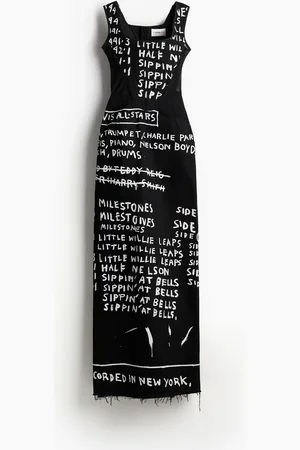 94
94
441·3 LITTLE WILL
42·1 HALF NE
1 SIPPIN'
SIPPIN
SIPP
VIS ALL-STARS
TRUMPET, CHARLIE PAR
IS, PIANO, NELSON BOYD
H, DRUMS.
D BY TEDDY REIG
R HARRY SMITH
MILESTONES SIDE
MILESTONES SIDE
MILESTONES SIDE
LITTLE WILLIE LEAPS SIDE
LITTLE WILLIE LEAPS SIDE
LITTLE WILLIE LEAPS
HALF NELSON
SIPPIN' AT BELLS
SIPPIN' AT BELLS
SIPPIN' AT BELLS
SIPPIN' AT BELLS,
CORDED IN NEW YORK,